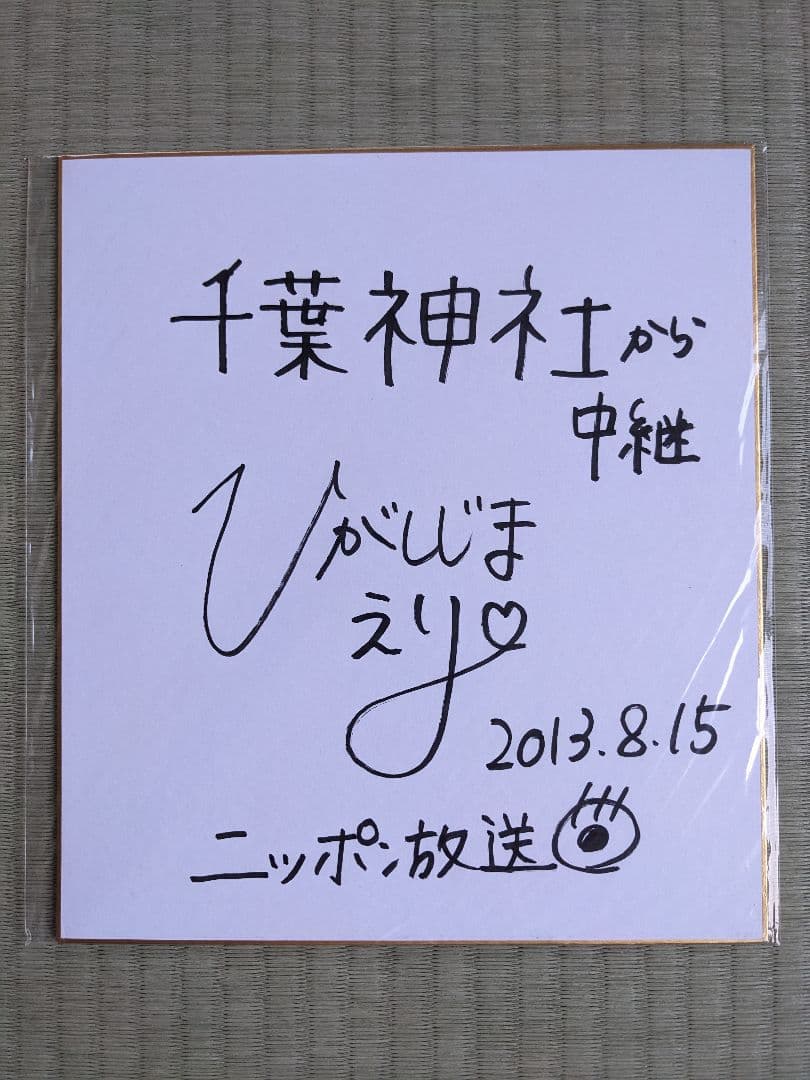 千葉神社から
中継
ひがしじま
えり♡
2013.8.15
ニッポン放送